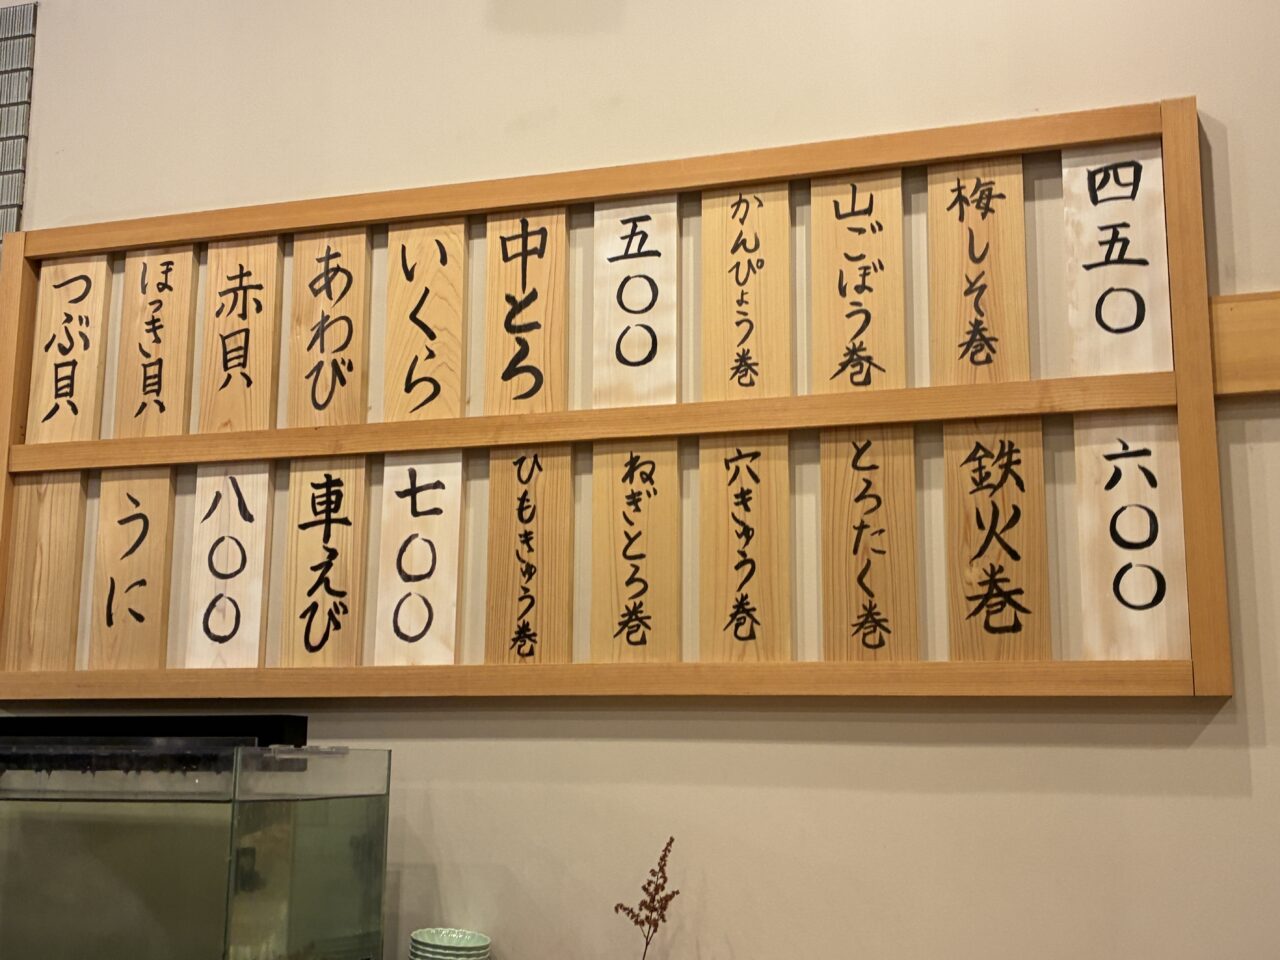 四五〇
梅しそ巻
山ごぼう巻
かんぴょう巻
五〇〇
中とろ
いくら
あわび
赤貝
ほっき貝
つぶ貝
六〇〇
鉄火巻
とろたく巻
穴きゅう巻
ねぎとろ巻
ひもきゅう巻
七〇〇
車えび
八〇〇
うに